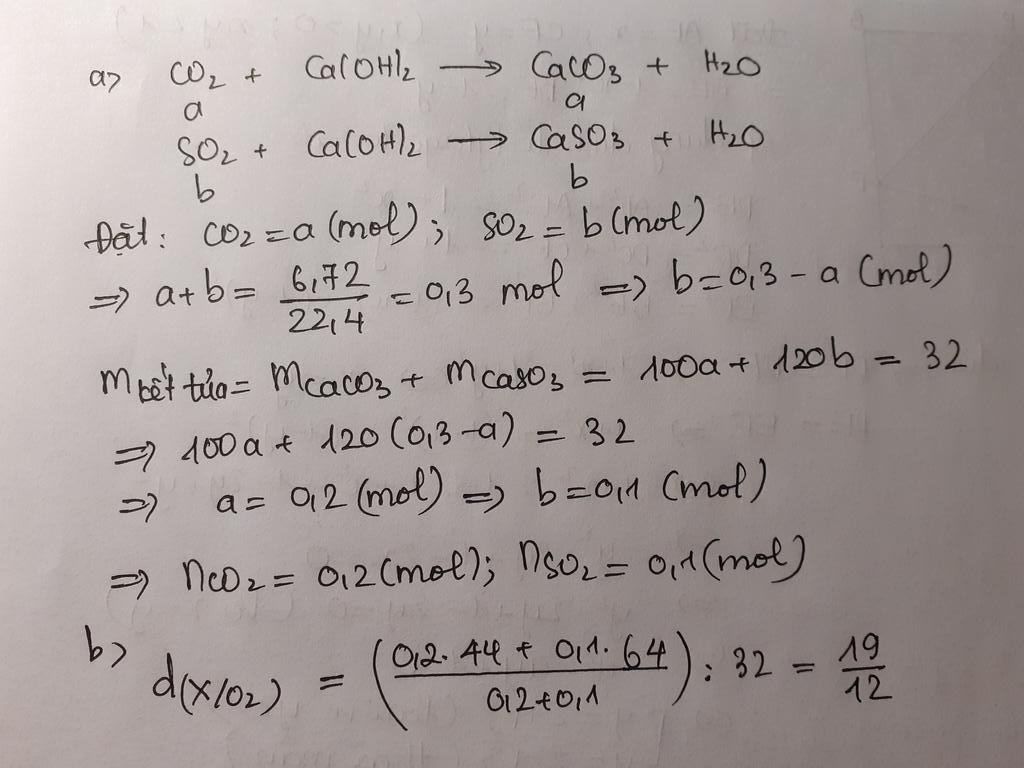 a> CO2 + Ca(OH)2 → CaCO3 + H2O
a a
SO2 + Ca(OH)2 → CaSO3 + H2O
b b
Đặt: CO2 = a (mol); SO2 = b (mol)
=> a + b = 6,72/22,4 = 0,3 mol => b = 0,3 - a (mol)
m kết tủa = mCaCO3 + mCaSO3 = 100a + 120b = 32
=> 100a + 120 (0,3 - a) = 32
=> a = 0,2 (mol) => b = 0,1 (mol)
=> nCO2 = 0,2 (mol); nSO2 = 0,1 (mol)
b> d(X/O2) = ((0,2. 44 + 0,1. 64)/(0,2 + 0,1)) : 32 = 19/12